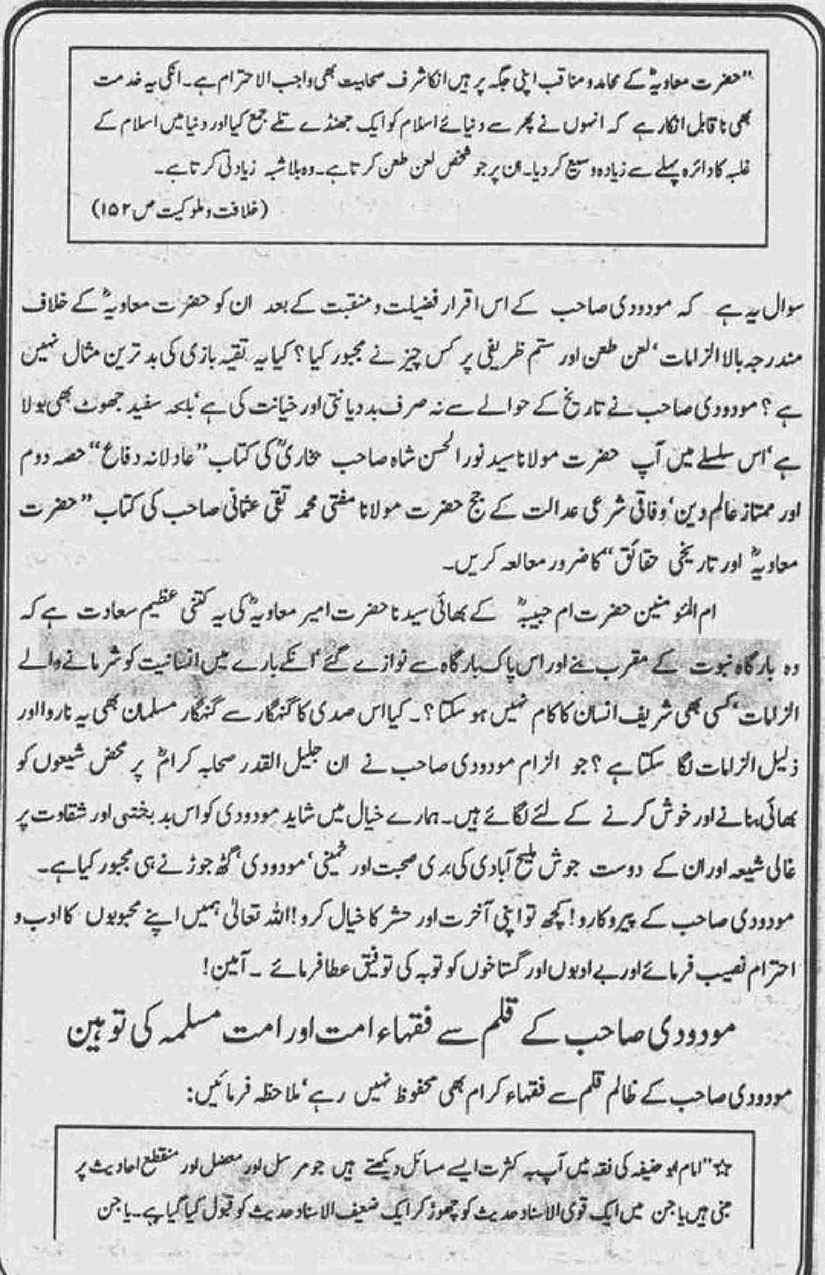 "حضرت معاویہؓ کے محامد و مناقب اپنی جگہ پر ہیں انکا شرف صحابیت بھی واجب الاحترام ہے۔ انکی یہ خدمت
بھی ناقابل انکار ہے کہ انہوں نے پھر سے دنیائے اسلام کو ایک جھنڈے تلے جمع کیا اور دنیا میں اسلام کے
غلبہ کا دائرہ پہلے سے زیادہ وسیع کر دیا۔ ان پر جو شخص لعن طعن کرتا ہے۔ وہ بلاشبہ زیادتی کرتا ہے۔
(خلافت و ملوکیت ص ۱۵۲)
سوال یہ ہے کہ مودودی صاحب کے اس اقرار فضیلت و منقبت کے بعد ان کو حضرت معاویہؓ کے خلاف
مندرجہ بالا الزامات، لعن طعن اور ستم ظریفی پر کس چیز نے مجبور کیا؟ کیا یہ تقیہ بازی کی بدترین مثال نہیں
ہے؟ مودودی صاحب نے تاریخ کے حوالے سے نہ صرف بددیانتی اور خیانت کی ہے، بلکہ سفید جھوٹ بھی بولا
ہے، اس سلسلے میں آپ حضرت مولانا سید نور الحسن شاہ صاحب بخاریؒ کی کتاب "عادلانہ دفاع" حصہ دوم
اور ممتاز عالم دین، وفاقی شرعی عدالت کے جج حضرت مولانا مفتی محمد تقی عثمانی صاحب کی کتاب "حضرت
معاویہؓ اور تاریخی حقائق" کا ضرور معالعہ کریں۔
ام المؤمنین حضرت ام حبیبہؓ کے بھائی سیدنا حضرت امیر معاویہؓ کی یہ کتنی عظیم سعادت ہے کہ
وہ بارگاہ نبوت کے مقرب بنے اور اس پاک بارگاہ سے نوازے گئے، انکے بارے میں انسانیت کو شرمانے والے
الزامات، کسی بھی شریف انسان کا کام نہیں ہو سکتا؟۔ کیا اس صدی کا گنہگار سے گنہگار مسلمان بھی یہ ناروا اور
ذلیل الزامات لگا سکتا ہے؟ جو الزام مودودی صاحب نے ان جلیل القدر صحابہ کرامؓ پر محض شیعوں کو
بھائی بنانے اور خوش کرنے کے لئے لگائے ہیں۔ ہمارے خیال میں شاید مودودی کو اس بدبختی اور شقاوت پر
غالی شیعہ اور ان کے دوست جوش ملیح آبادی کی بری صحبت اور خمینی، مودودی، گٹھ جوڑ نے ہی مجبور کیا ہے۔
مودودی صاحب کے پیروکارو! کچھ تو اپنی آخرت اور حشر کا خیال کرو! اللہ تعالیٰ ہمیں اپنے محبوبوں کا ادب و
احترام نصیب فرمائے اور بے ادبوں اور گستاخوں کو توبہ کی توفیق عطا فرمائے ۔ آمین!
مودودی صاحب کے قلم سے فقہاء امت اور امت مسلمہ کی توہین
مودودی صاحب کے ظالم قلم سے فقہاء کرام بھی محفوظ نہیں رہے، ملاحظہ فرمائیں:
☆ "امام ابو حنیفہ کی فقہ میں آپ بہ کثرت ایسے مسائل دیکھتے ہیں جو مرسل اور معضل اور منقطع احادیث پر
مبنی ہیں یا جن میں ایک قوی الاسناد حدیث کو چھوڑ کر ایک ضعیف الاسناد حدیث کو قبول کیا گیا ہے۔ یا جن